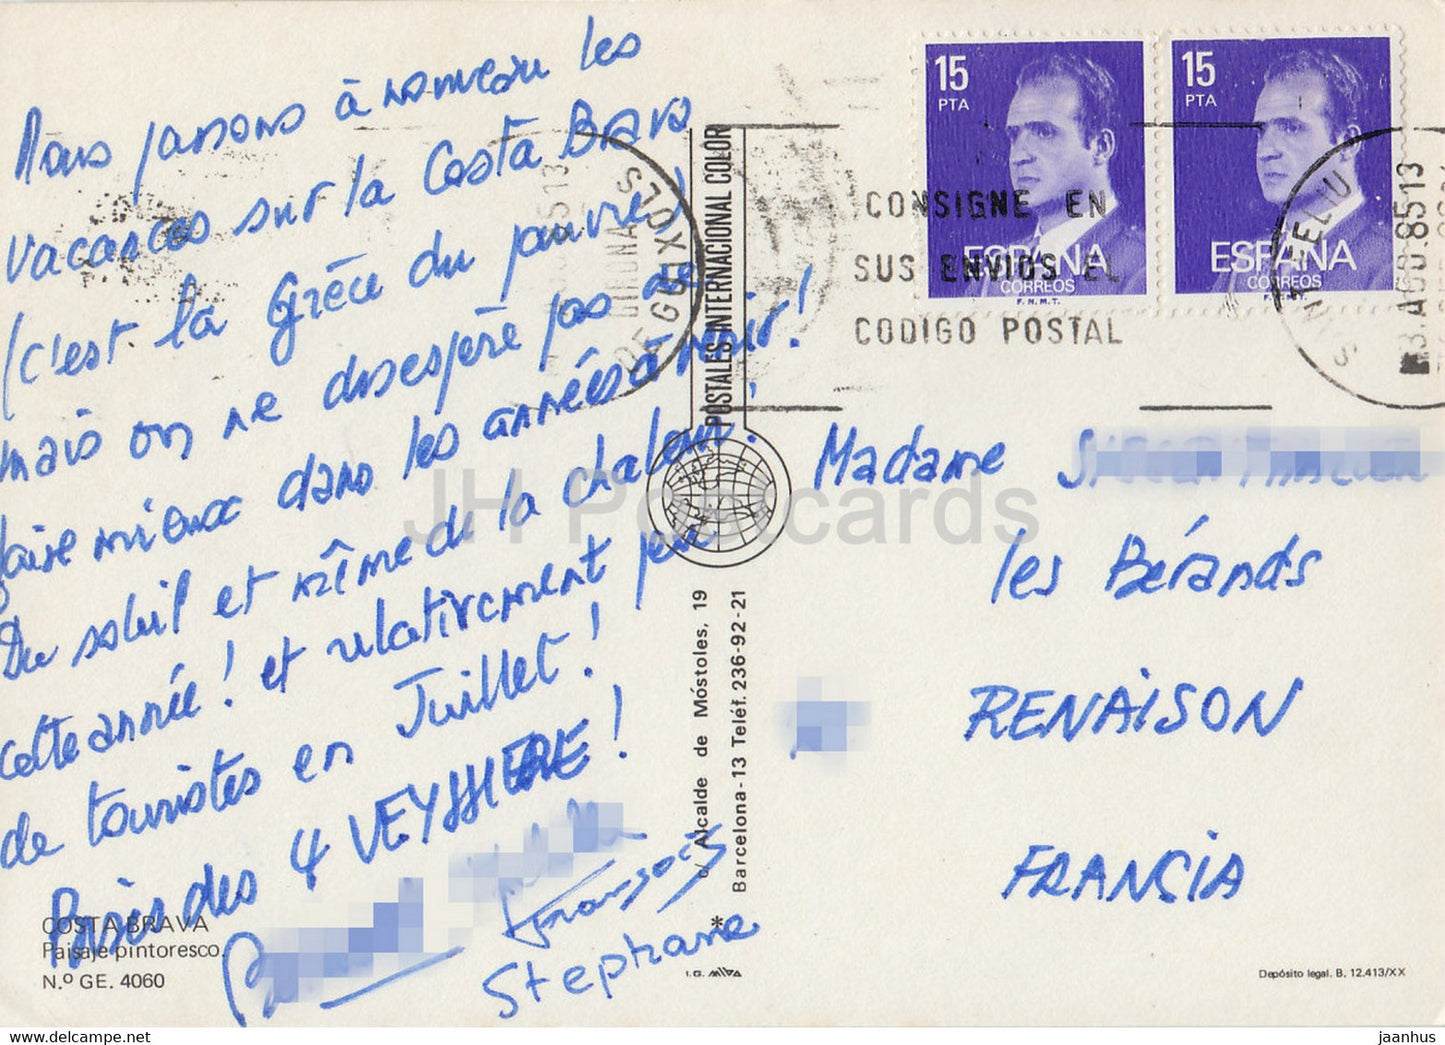 Nous passons à nouveau les
vacances sur la Costa Brava
(c'est la Grèce du pauvre)
mais on ne désespère pas de
faire mieux dans les années à venir!
Du soleil et même de la chaleur!
cette année! et relativement peu
de touristes en Juillet!
Bises des 4 VEYSSIERE!
François
Stephane
COSTA BRAVA
Paisaje pintoresco.
N.º GE. 4060
POSTALES INTERNACIONAL COLOR
c/ Alcalde de Móstoles, 19
Barcelona-13 Teléf. 236-92-21
*
I.G.
15
PTA
ESPAÑA
CORREOS
F.N.M.T.
15
PTA
ESPAÑA
CORREOS
F.N.M.T.
CONSIGNE EN
SUS ENVIOS EL
CODIGO POSTAL
DE GUIXOLS
3.AGO.8513
Madame
les Bérands
RENAISON
FRANCIA
Depósito legal. B. 12.413/XX
JH Postcards
www.hippostcard.com
jaanhus